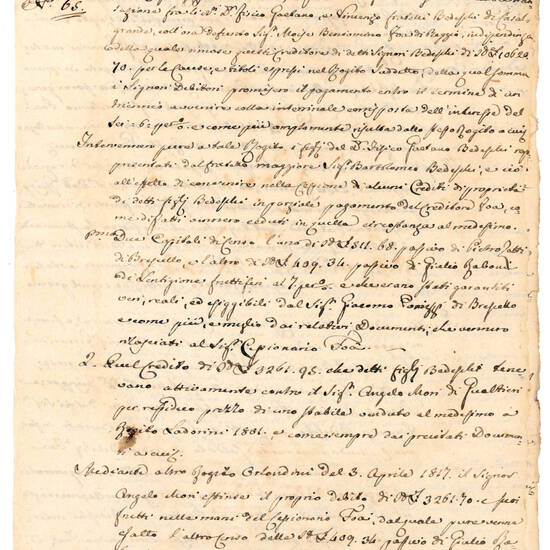 N.° 68.
fra li Sig.ri D.r Fisico Gaetano, e Vincenzo Fratelli Bedeschi di Casal-
grande, coll'ora defonto Sig.r Moise Benvimento Foà di Reggio, in dipendenza
della quale rimase questi Creditore di detti Signori Bedeschi di
70. per le Cause, e titoli espressi nel Rogito suddetto, della qual somma
i Signori Debitori promisero il pagamento entro il termine di un
avvenire colla corrisposta dell'interesse del
Sei a 6. per %. e come più amplamente risulta dallo stesso Rogito a cui
Intervennero pure a tale Rogito i figlj del D.r Fisico Gaetano Bedeschi rap-
presentati dal fratello maggiore Sig.r Bartolomeo Bedeschi, e ciò
all'effetto di convenire nella Cessione di alcuni Crediti di proprietà
di detti figlj Bedeschi in porziale pagamento del Creditore Foà, co-
me difatti vennero ceduti in quella circostanza al medesimo.
p.mo Due Capitali di Censo l'uno di 811. 68. passivo di Pietro
di Brescello, e l'altro di 409. 34. passivo di Giulio Raboni
di Lentigione fruttiferi al 7. per %. e che erano stati garantiti
veri, reali, ed esiggibili dal Sig.r Giacomo Panizzi di Brescello
e come più, e meglio dai relativi Documenti, che vennero
rilasciati al Sig.r Cessionario Foà
2. Quel Credito di 3261. 95. che detti figlj Bedeschi tene-
vano attivamente contro il Sig.r Angelo Mori di Gualtieri
per residuo prezzo di uno stabile venduto al medesimo a
Rogito 1801. e come sempre dai precitati Docum-
ti a cui
Mediante altro Rogito Orlandini del 3. Aprile 1817. il Signor
Angelo Mori estinse il proprio debito di 3261. 70. e suoi
frutti nelle mani del Cessionario Foà, dal quale pure venne
esatto l'altro Censo delle 409. 34. passivo di Giulio Ra-